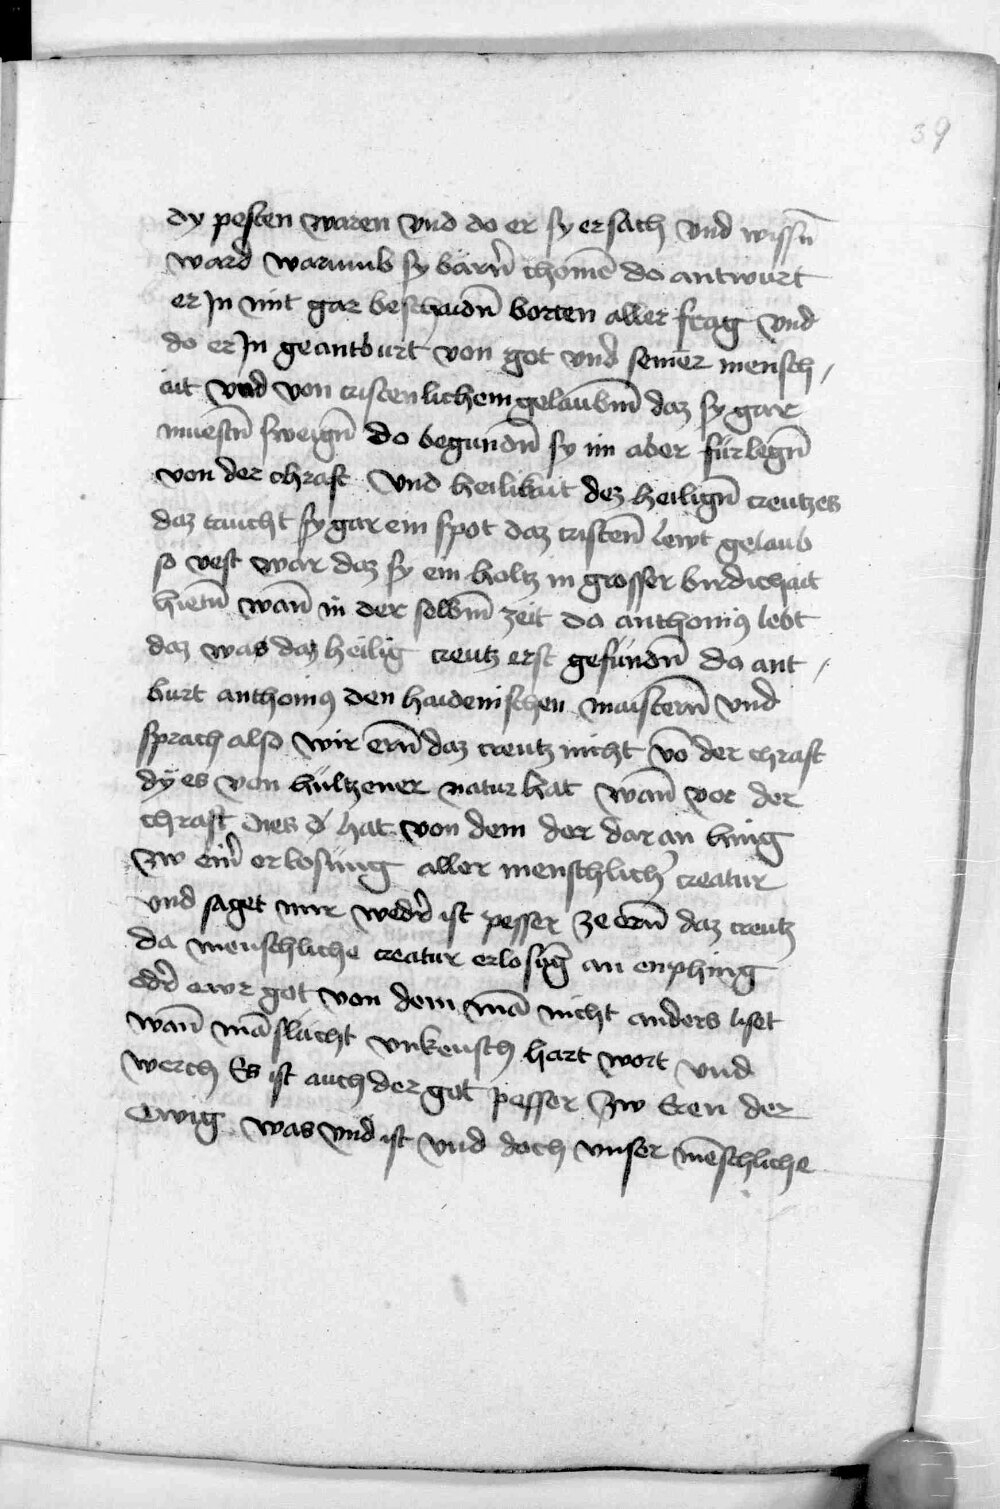 39
dy pesten waren vnd do er sy ersach vnd wissn̄
ward warumb sy barn̄ chomē do antwurt
er Jn mit gar beschaidn̄ borten aller frag vnd
do er Jn geantburt von got vnd seiner mensch
ait vnd von cristenlichem gelaubm̄ daz sy gar
muestn̄ sweign̄ do begundn̄ sy im aber fürlegn̄
von der chraft vnd heilikait dez heilign̄ creutzes
daz taucht sy gar ein spot daz cristen̄ lewt gelaub
so vest war daz sy ein holtz in grosser birdichait
hietn̄ wan̄ in der selbm̄ zeit da anthonius lebt
daz was daz heilig creutz erst gefundn̄ da ant
burt anthonius den haidenischen maistern̄ vnd
sprach also wir ern̄ daz creutz nicht vō der chraft
dÿ es von hültzener natur hat wan̄ vor der
chraft dies d hat von dem der dar an hing
zw ein̄ erlosüng aller menschlich' creatur
vnd saget mir wedr̄ ist pesser ze ern̄ daz creutz
da menschliche creatur erlosūg an enphing
odr̄ ewr got von dem mā nicht anders liset
wan̄ māslacht vnkeusch hart wort vnd
werch Es ist auch der got pesser zw Eren der
Ewig was vnd ist vnd doch vnser mēschliche